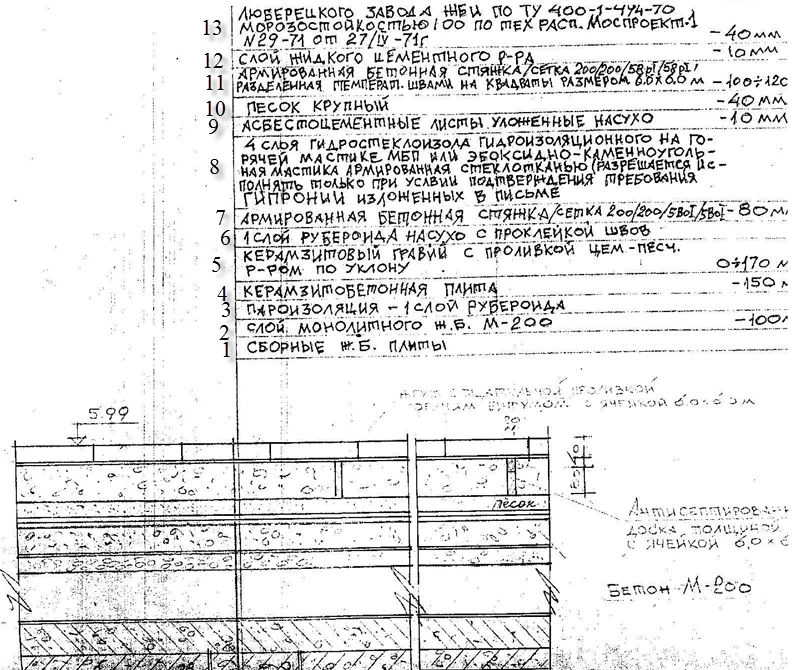 13 ЛЮБЕРЕЦКОГО ЗАВОДА ЖБИ ПО ТУ 400-1-474-70
МОРОЗОСТОЙКОСТЬЮ 100 ПО ТЕХ РАСП. МОСПРОЕКТ-1
N29-71 ОТ 27/IV-71г -40мм
12 СЛОЙ ЖИДКОГО ЦЕМЕНТНОГО Р-РА -10мм
АРМИРОВАННАЯ БЕТОННАЯ СТЯЖКА/СЕТКА 200/200/5ВрI/5ВрI,
11 РАЗДЕЛЕННАЯ ТЕМПЕРАТ. ШВАМИ НА КВАДРАТЫ РАЗМЕРОМ 6.0×6.0 М -100÷120
10 ПЕСОК КРУПНЫЙ -40мм
9 АСБЕСТОЦЕМЕНТНЫЕ ЛИСТЫ УЛОЖЕННЫЕ НАСУХО -10мм
4 СЛОЯ ГИДРОСТЕКЛОИЗОЛА ГИДРОИЗОЛЯЦИОННОГО НА ГО-
РЯЧЕЙ МАСТИКЕ МБП ИЛИ ЭБОКСИДНО-КАМЕННОУГОЛЬ-
8 НАЯ МАСТИКА АРМИРОВАННАЯ СТЕКЛОТКАНЬЮ (РАЗРЕШАЕТСЯ ИС-
ПОЛНЯТЬ ТОЛЬКО ПРИ УСЛВИИ ПОДТВЕРЖДЕНИЯ ТРЕБОВАНИЯ
ГИПРОНИИ ИЗЛОЖЕННЫХ В ПИСЬМЕ
7 АРМИРОВАННАЯ БЕТОННАЯ СТЯЖКА/СЕТКА 200/200/5ВрI/5ВрI -80мм
6 1 СЛОЙ РУБЕРОИДА НАСУХО С ПРОКЛЕЙКОЙ ШВОВ
КЕРАМЗИТОВЫЙ ГРАВИЙ С ПРОЛИВКОЙ ЦЕМ-ПЕСЧ.
5 Р-РОМ ПО УКЛОНУ 0÷170 м
4 КЕРАМЗИТОБЕТОННАЯ ПЛИТА -150 м
3 ПАРОИЗОЛЯЦИЯ - 1 СЛОЙ РУБЕРОИДА
2 СЛОЙ МОНОЛИТНОГО Ж.Б. М-200 -100
1 СБОРНЫЕ Ж.Б. ПЛИТЫ
БИТУМОМ С ЯЧЕЙКОЙ 6,0×6,0м
5.99
20
40
песок
АНТИСЕПТИРОВАНН
ДОСКА ТОЛЩИНОЙ
С ЯЧЕЙКОЙ 6,0×6
БЕТОН М-200